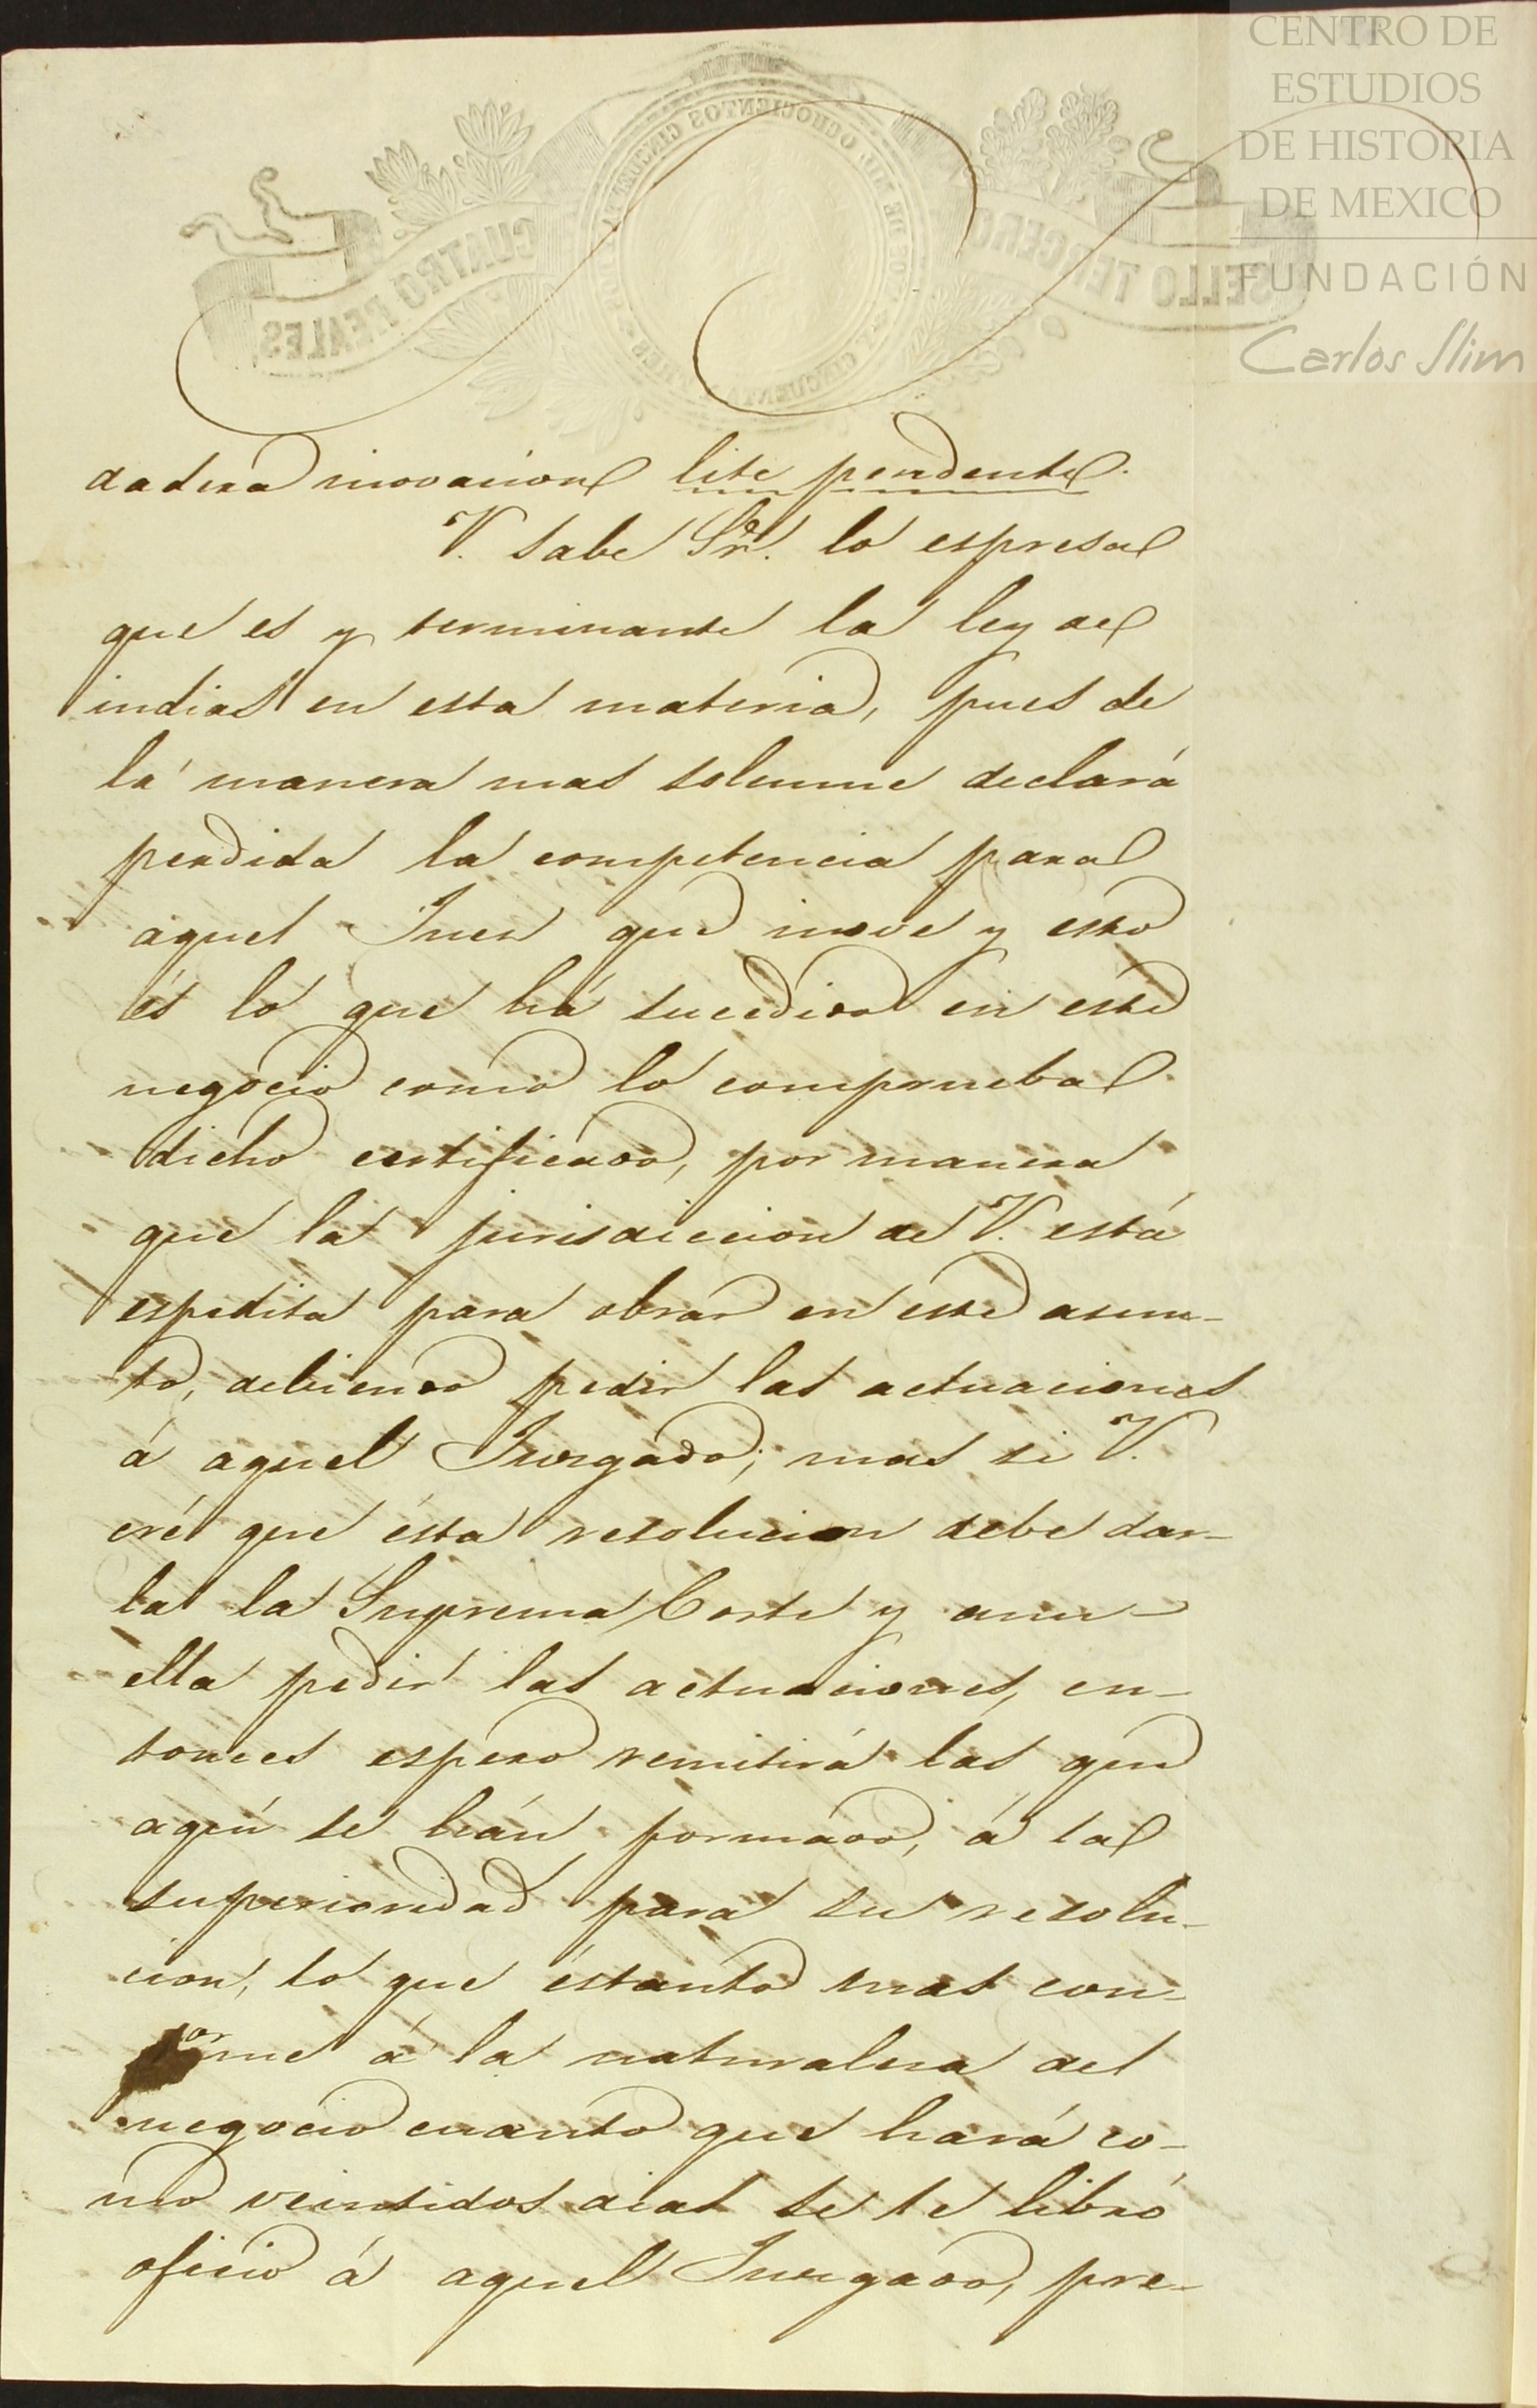 CENTRO DE
ESTUDIOS
DE HISTORIA
DE MEXICO
FUNDACIÓN
Carlos Slim
SELLO TERCERO
CUATRO REALES
dadera inovacion lite pendente.
V. sabe Sr. lo espresa
que es y terminante la ley de
indias en esta materia, pues de
la manera mas solemne declará
perdida la competencia para
aquel Juez que inove y esto
és lo que há sucedido en este
negocio como lo comprueba
dicho certificado, por manera
que la jurisdiccion de V. está
espedita para obrar en este asun-
to, debiendo pedir las actuaciones
á aquel Juzgado; mas si V.
cré que ésta resolucion debe dar-
la la Suprema Corte y aun
ella pedir las actuaciones, en-
tonces espero remitirá las que
aquí se hán formado, á la
superioridad para su resolu-
cion, lo que és tanto mas con-
forme á la naturaleza del
negocio cuanto que hará co-
mo veintidos dias se le libró
oficio á aquel Juzgado, pre-